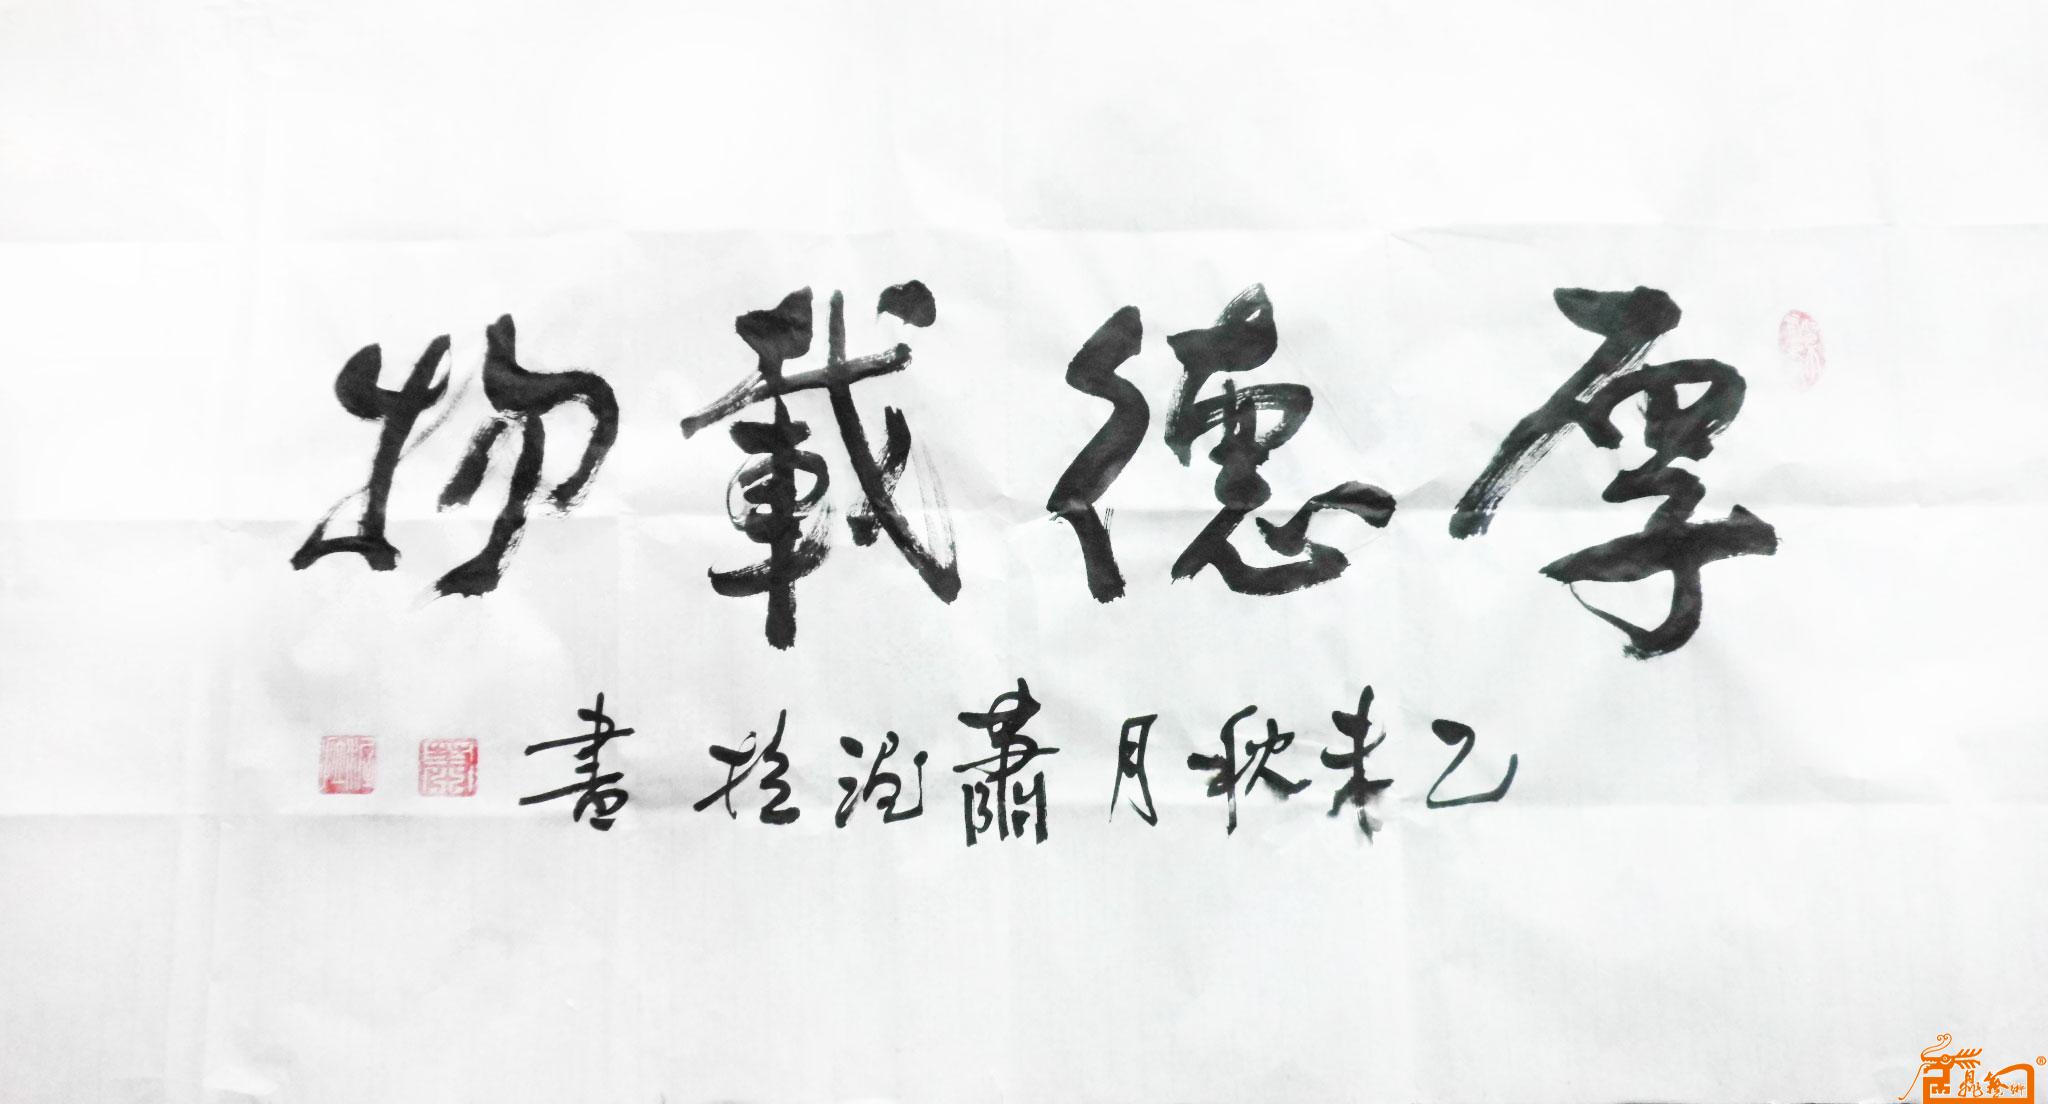 厚德載物
乙未秋月蕭
書